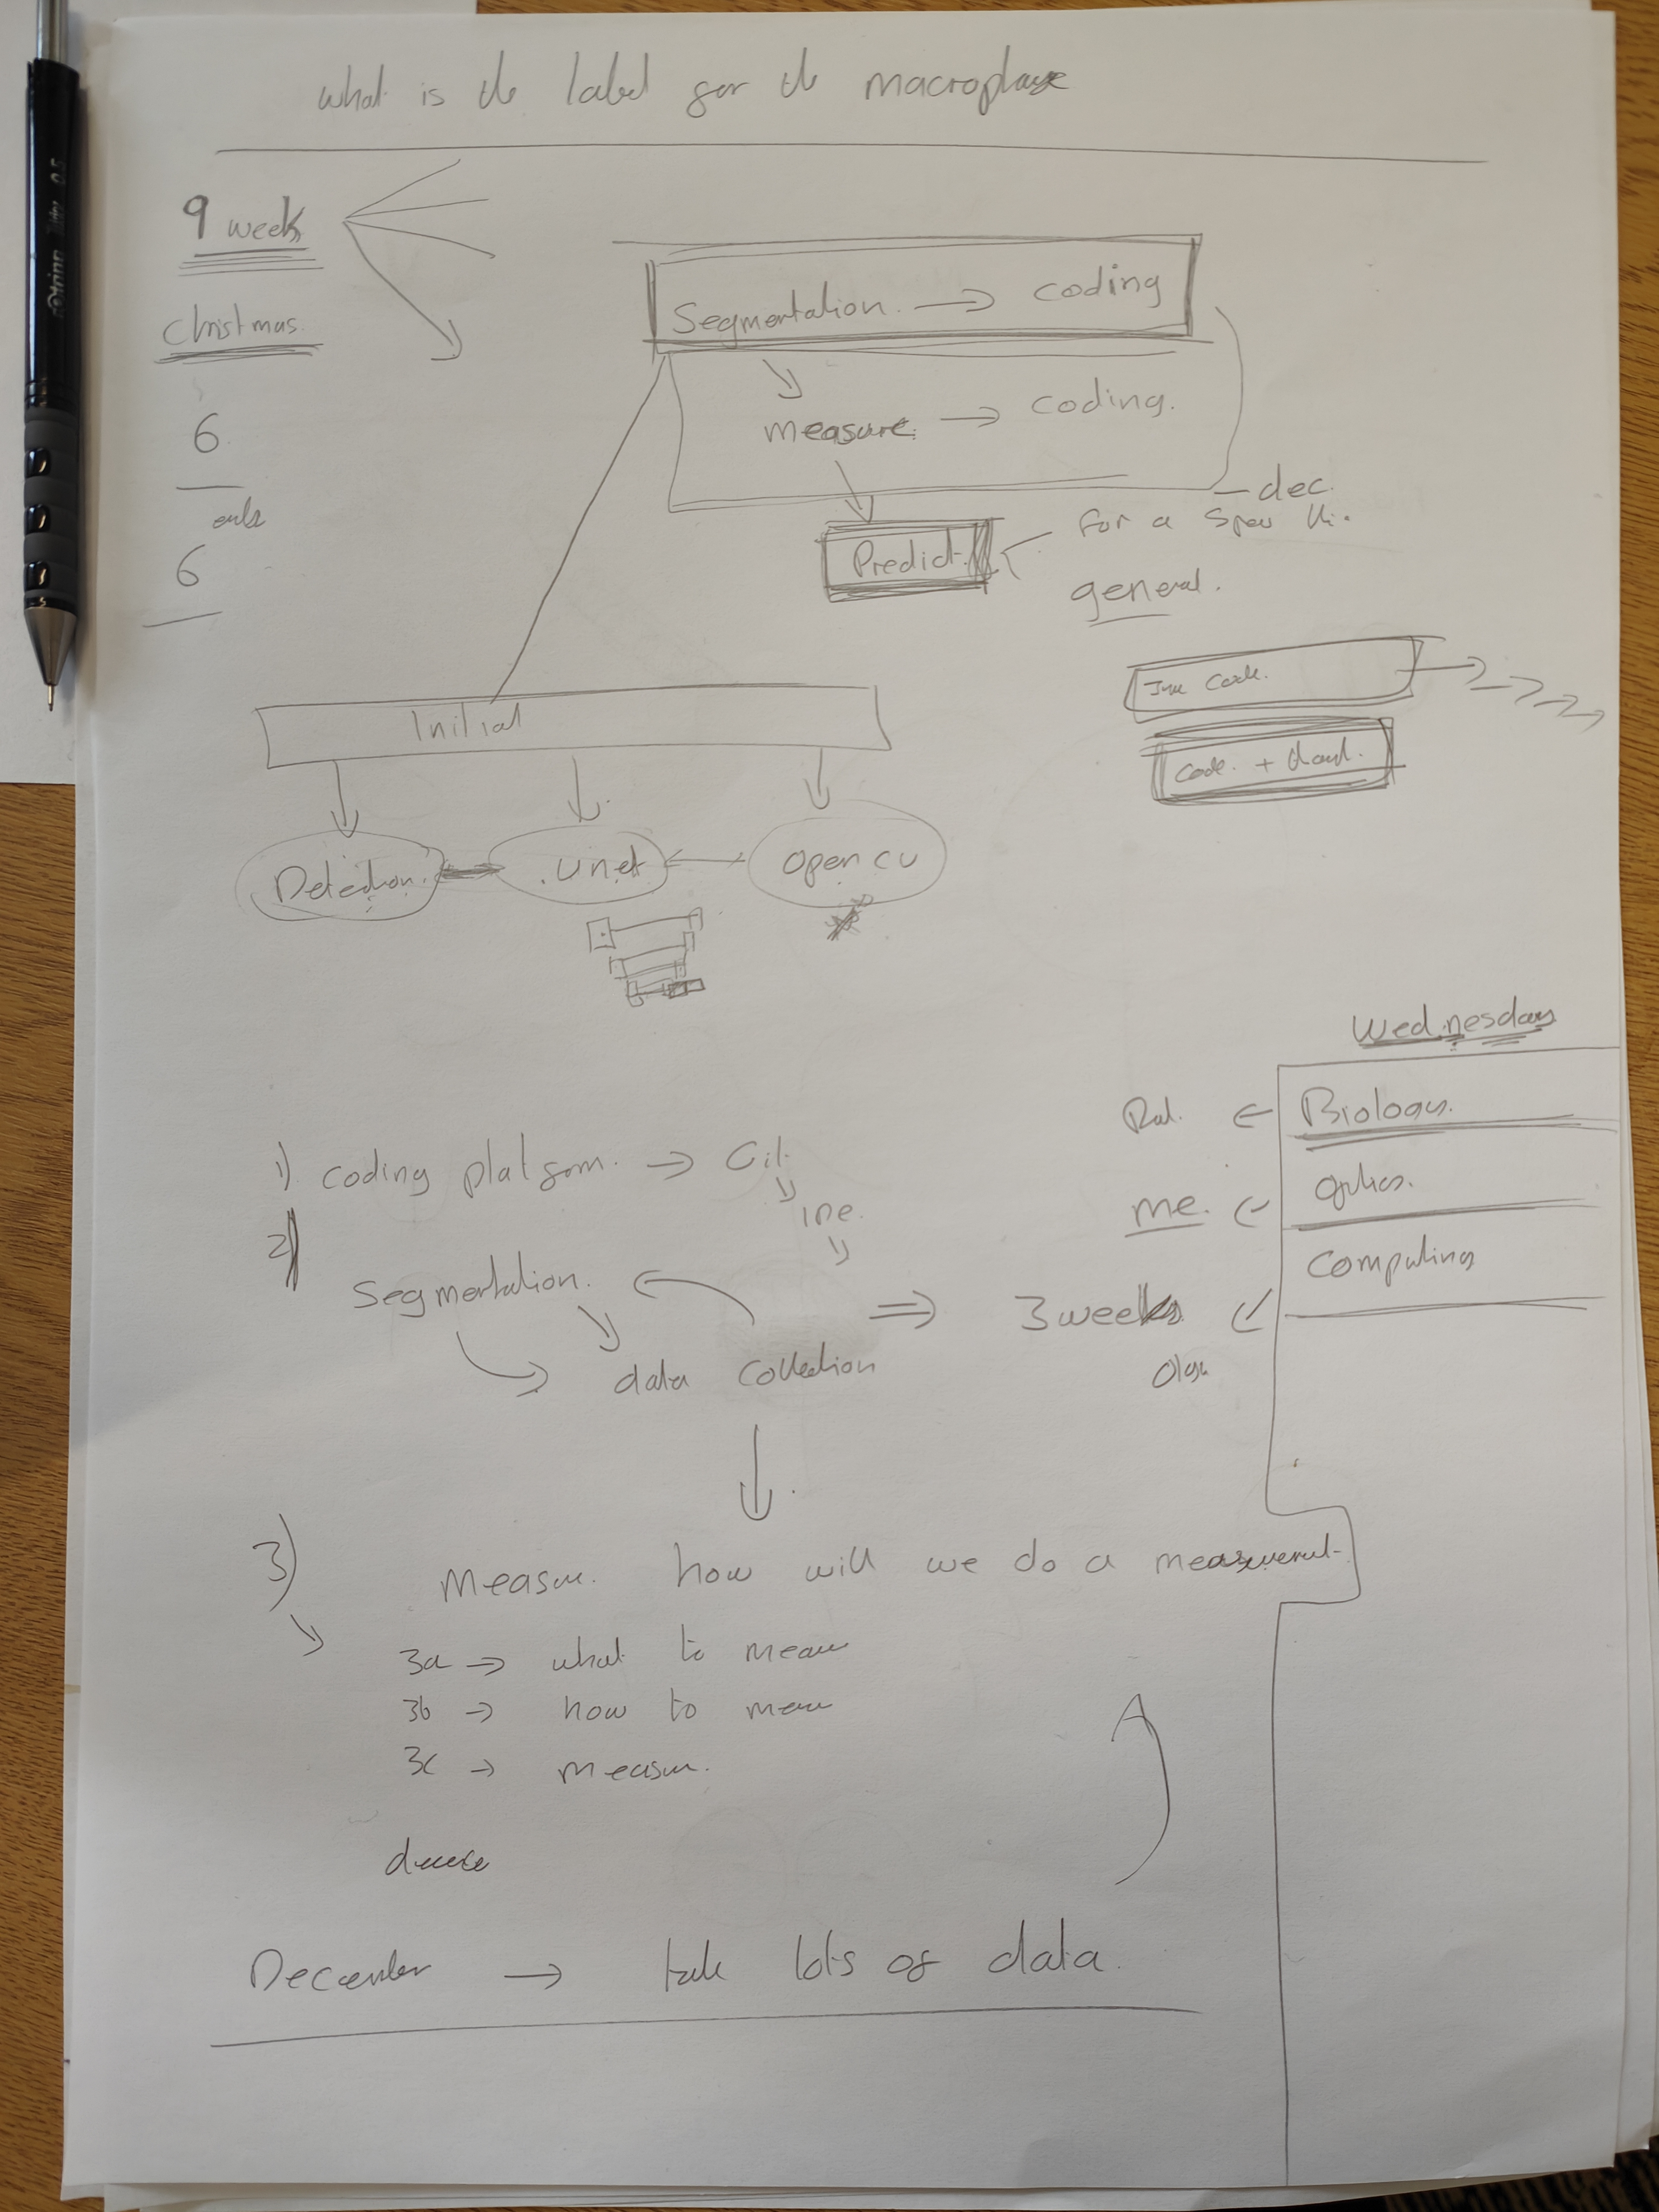 what is the label for the macrophage
9 weeks
Christmas.
6
6
Segmentation. → coding
measure. → coding.
dec.
Predict.
for a
general.
Code.
Code. + Hand.
Initial
Detection.
Unet
Open CV
Wednesday
Biology.
optics.
me.
Computing
1) coding platform. → Git.
2)
Segmentation.
data collection
⇒ 3 weeks
Olga
3)
Measure. how will we do a measurement
3a → what to measure
3b → how to measure
3c → measure.
December → take lots of data.
rOtring
0.5